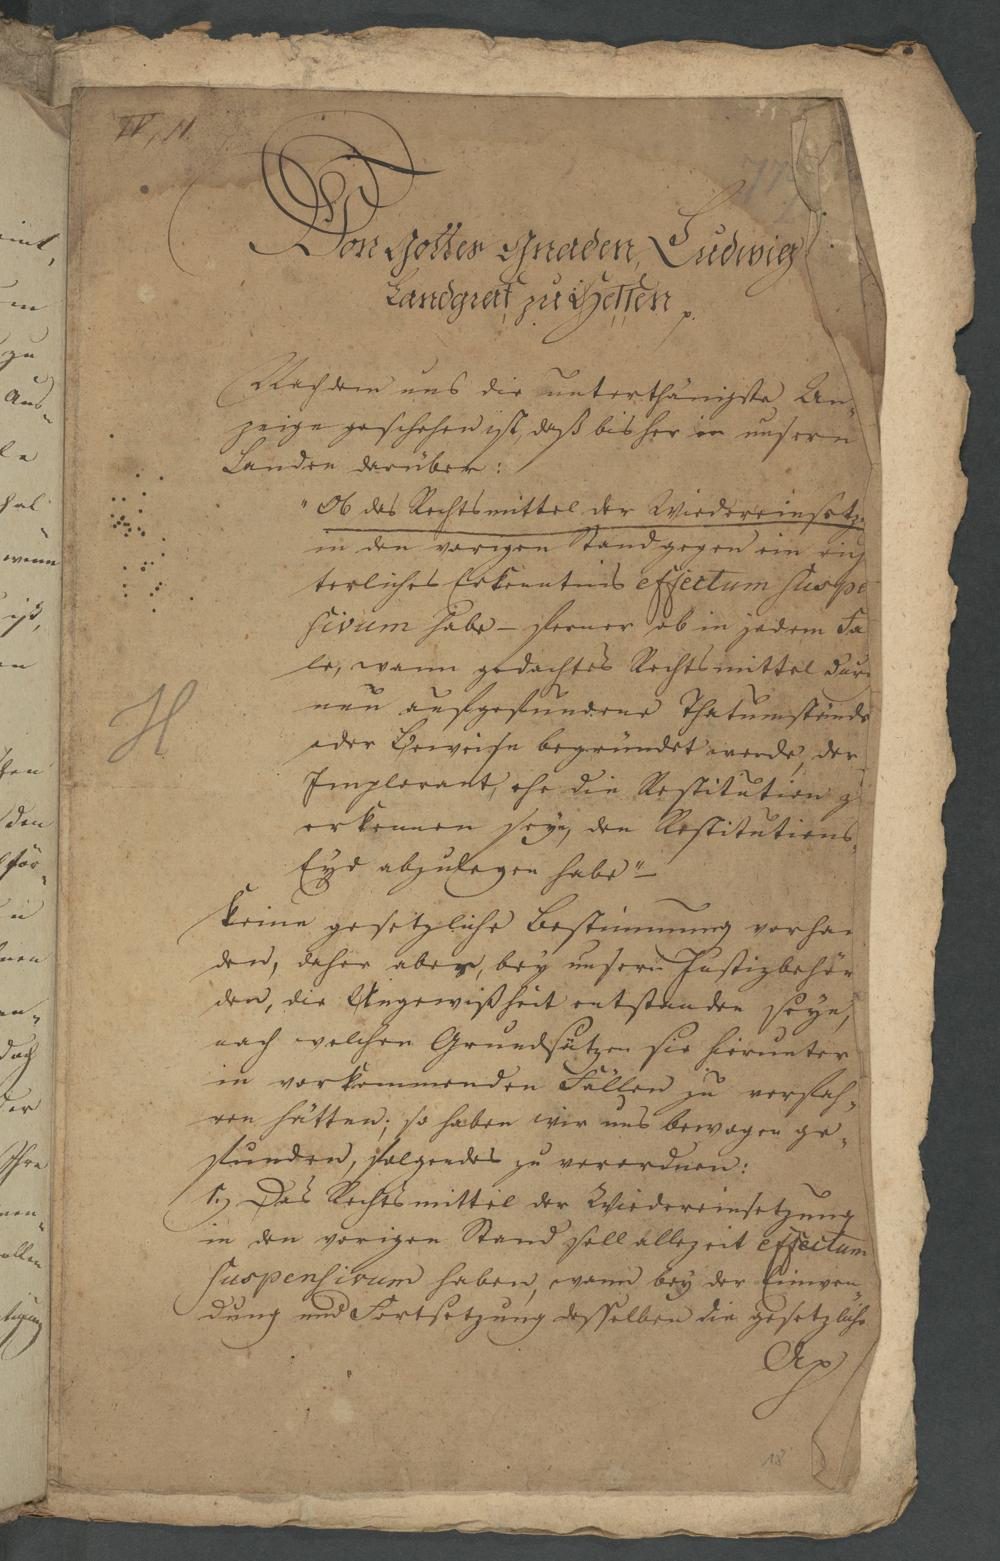 IV, 11.
77
Von Gottes Gnaden, Ludwig
Landgraf zu Hessen p.
Nachdem uns die unterthänigste An-
zeige geschehen ist, daß bisher in unsern
Landen darüber:
"Ob das Rechtsmittel der Wiedereinsetz
in den vorigen Stand gegen ein rich
terliches Erkenntnis effectum suspe
sivum habe – ferner ob in jedem Fa
le, wann gedachtes Rechtsmittel dur
neu aufgefundene Thatumstände
oder Beweise begründet werde, der
Implorant, ehe die Restitution z
erkennen seye, den Restitutions-
Eyd abzulegen habe" –
keine gesetzliche Bestimmung vorhan
den, daher aber, bey unsern Justizbehör
den, die Ungewißheit entstanden seye,
nach welchen Grundsätzen sie hierunter
in vorkommenden Fällen zu verfah-
ren hätten; so haben wir uns bewogen ge-
funden, folgendes zu verordnen:
1.) Das Rechtsmittel der Wiedereinsetzung
in den vorigen Stand soll allezeit effectum
suspensivum haben, wann bey der Einwen-
dung und Fortsetzung desselben die gesetzliche
Ap
H
18